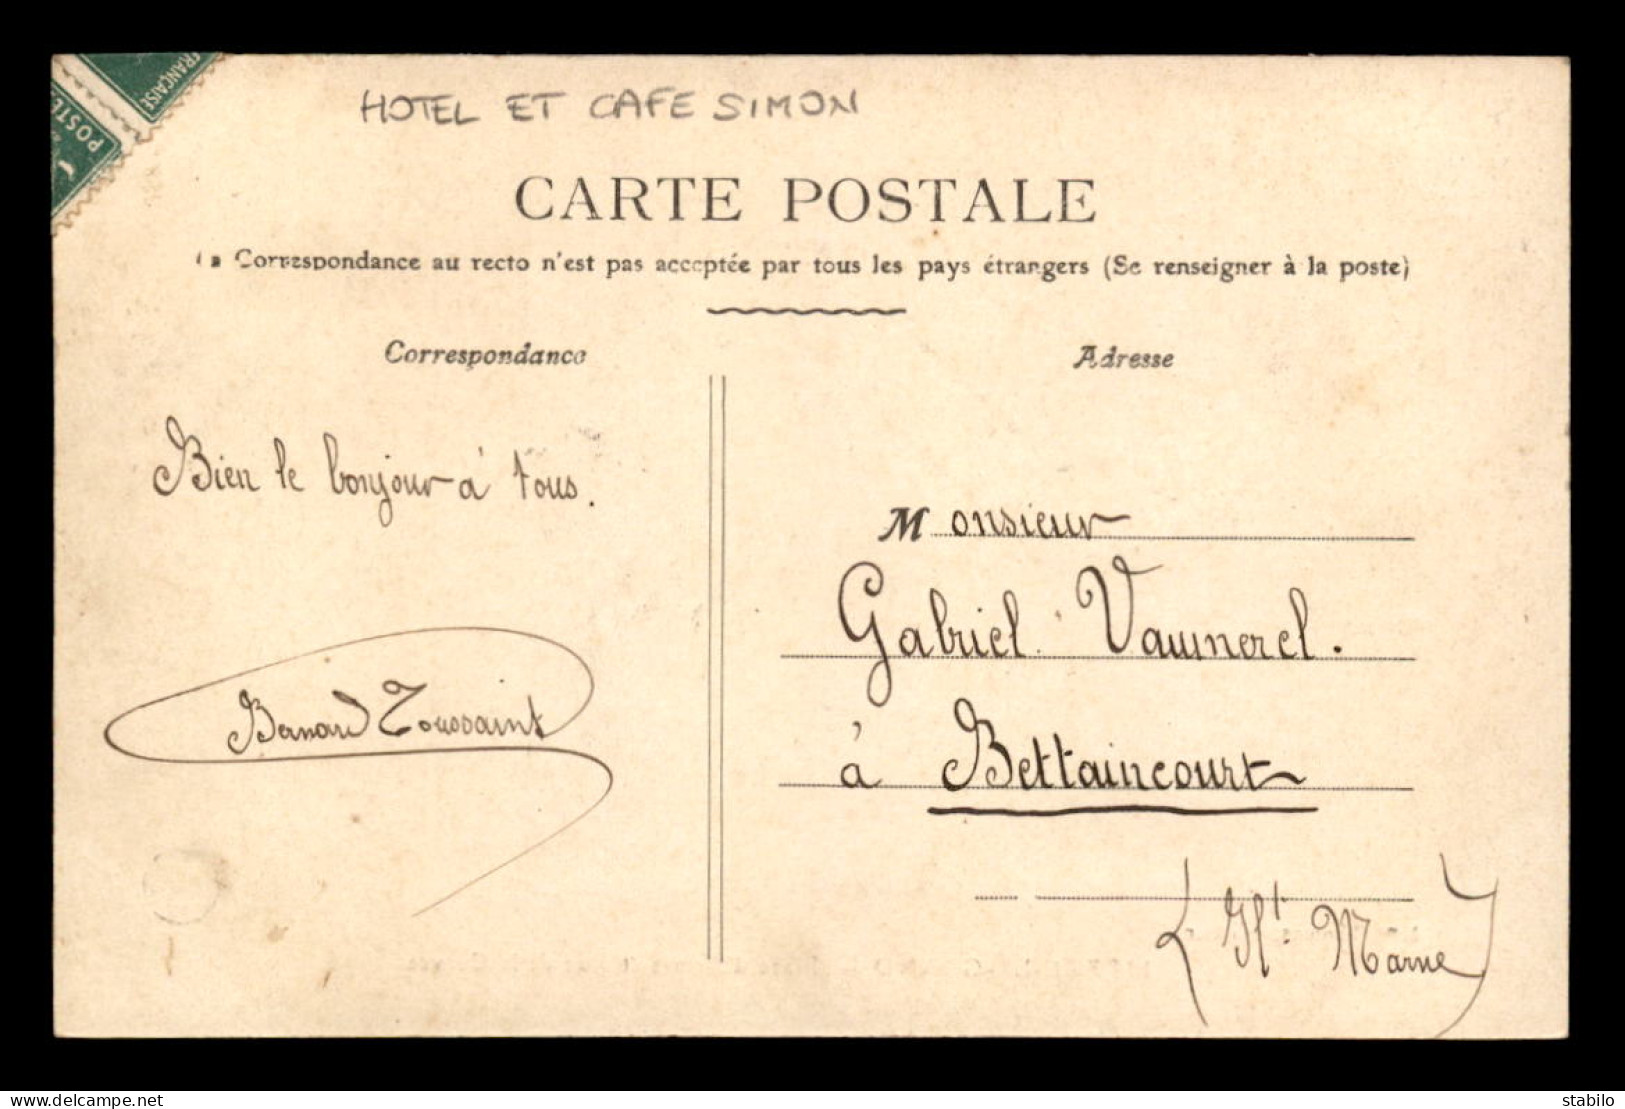 FRANÇAISE
POSTE
HOTEL ET CAFE SIMON
CARTE POSTALE
La Correspondance au recto n'est pas acceptée par tous les pays étrangers (Se renseigner à la poste)
Correspondance
Adresse
Bien le bonjour à tous.
Bernard Toussaint
Monsieur
Gabriel Vaumerel.
à Bettaincourt
(Hte Marne)
delcampe.net
stabilo